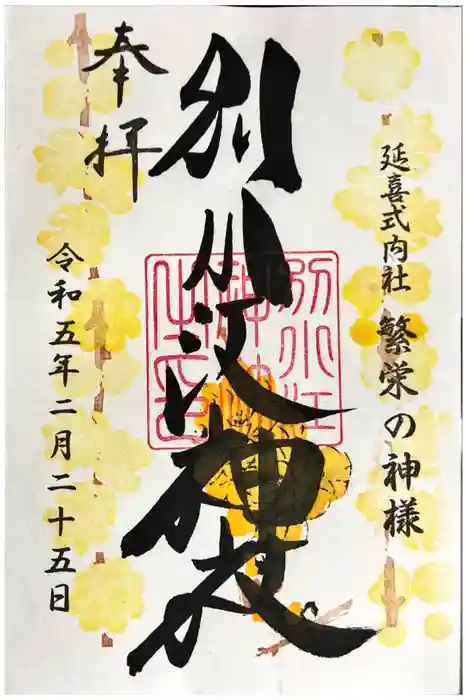 延喜式内社 繁栄の神様
別小江神社
別小江
神社
之印
奉拝
令和五年二月二十五日